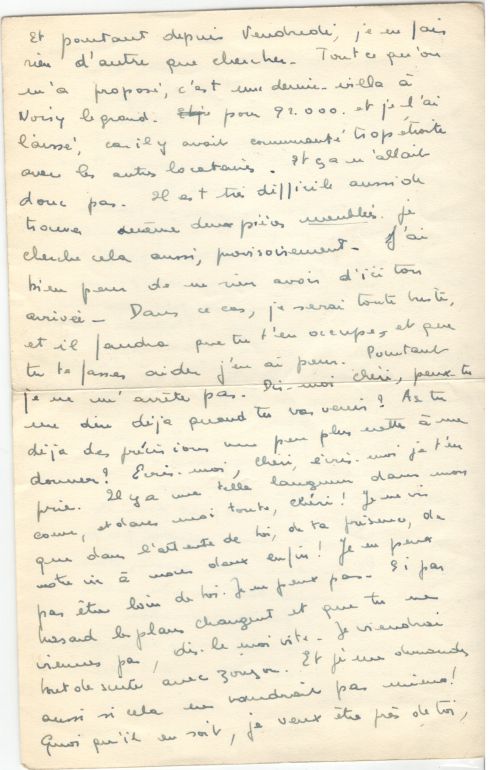 Et pourtant depuis Vendredi, je ne fais
rien d'autre que chercher. Tout ce qu'on
m'a proposé, c'est une demie-villa à
Noisy le grand. pour 92.000. et je l'ai
laissé, car il y avait communauté trop étroite
avec les autres locataires. Et ça n'allait
donc pas. Il est très difficile aussi de
trouver même deux pièces meublés. je
cherche cela aussi, provisoirement. J'ai
bien peur de ne rien avoir d'ici ton
arrivée - Dans ce cas, je serai toute triste,
et il faudra que tu t'en occupes et que
tu te fasses aider j'en ai peur. Pourtant
je ne m'arrête pas. Dis-moi chéri, peux-tu
me dire déjà quand tu vas venir? As tu
déjà des précisions un peu plus nettes à me
donner? Écris-moi, chéri, écris-moi je t'en
prie. Il y a une telle langueur dans mon
cœur, et dans moi toute, chéri! Je ne vis
que dans l'attente de toi, de ta présence, de
notre vie à nous deux enfin! Je ne peux
pas être loin de toi. Je ne peux pas. Si par
hasard les plans changent et que tu ne
viennes pas, dis-le moi vite. Je viendrai
tout de suite avec Et je me demande
aussi si cela ne vaudrait pas mieux!
Quoi qu'il en soit, je veux être près de toi,